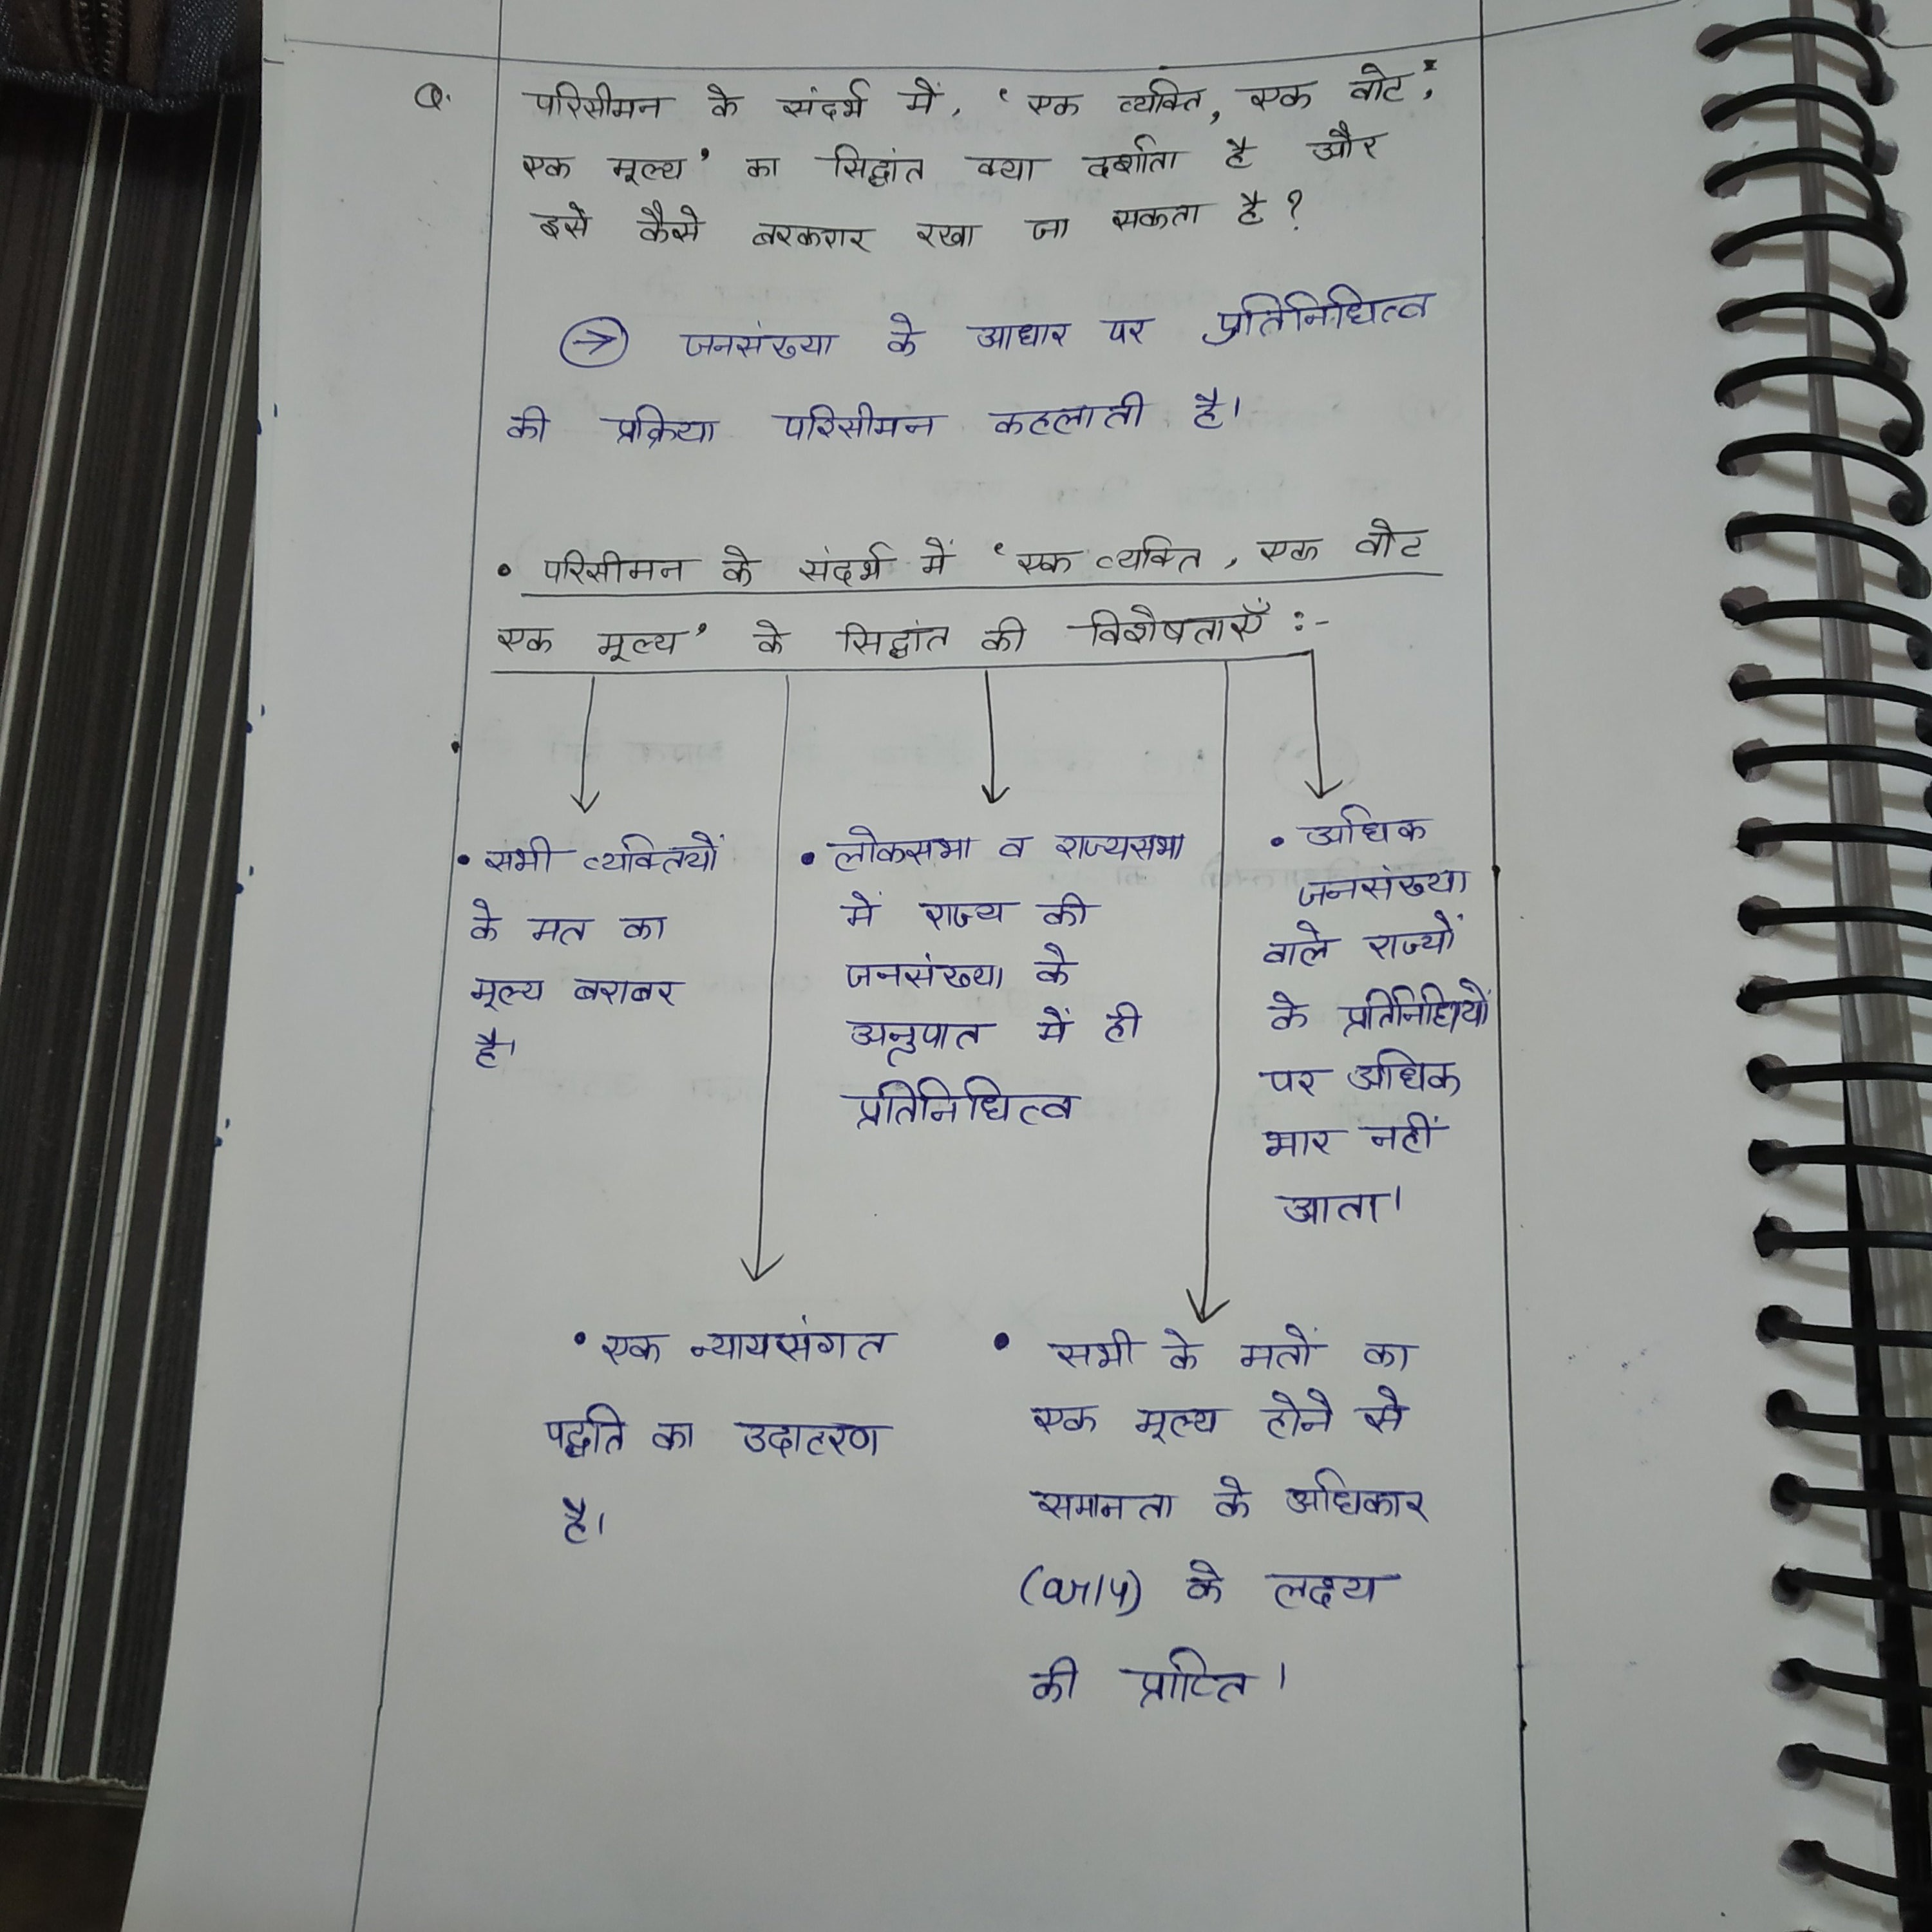 Q. परिसीमन के संदर्भ में, 'एक व्यक्ति, एक वोट,
एक मूल्य' का सिद्धांत क्या दर्शाता है और
इसे कैसे बरकरार रखा जा सकता है?
→ जनसंख्या के आधार पर प्रतिनिधित्व
की प्रक्रिया परिसीमन कहलाती है।
• परिसीमन के संदर्भ में 'एक व्यक्ति, एक वोट
एक मूल्य' के सिद्धांत की विशेषताएँ :-
• सभी व्यक्तियों
के मत का
मूल्य बराबर
है।
• लोकसभा व राज्यसभा
में राज्य की
जनसंख्या के
अनुपात में ही
प्रतिनिधित्व
• अधिक
जनसंख्या
वाले राज्यों
के प्रतिनिधियों
पर अधिक
भार नहीं
आता।
• एक न्यायसंगत
पद्धति का उदाहरण
है।
• सभी के मतों का
एक मूल्य होने से
समानता के अधिकार
(art14) के लक्ष्य
की प्राप्ति।